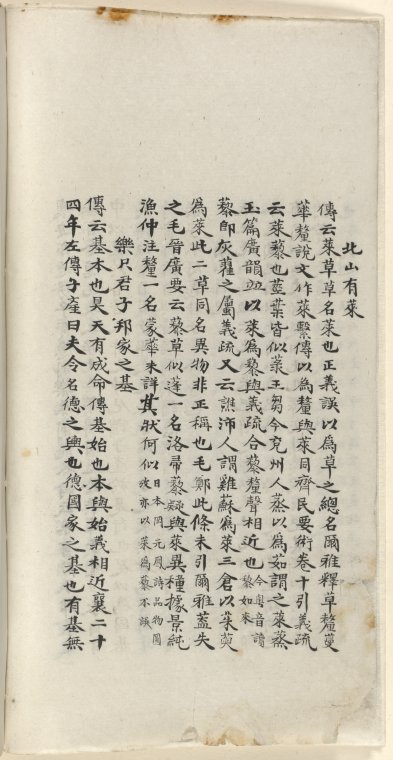 北山有萊
傳云萊草草名萊也正義誤以為草之總名爾雅釋草釐蔓
華釐說文作萊繫傳以為釐與萊同齊民要術卷十引義疏
云萊藜也莖葉皆似菉王芻今兗州人蒸以為茹謂之萊蒸
玉篇廣韻並以萊為藜與義疏合藜釐聲相近也今粵音讀黎如來
藜即灰藋之屬義疏又云譙沛人謂雞蘇為萊三倉以茱萸
為萊此二草同名異物非正稱也毛鄭此條未引爾雅蓋失
之毛晉廣要云藜草似蓬一名洛帚藜類與萊異種據景純
漁仲注釐一名蒙華未詳其狀何似日本岡元鳳詩品物圖攷亦以萊為藜不誤
樂只君子邦家之基
傳云基本也昊天有成命傳基始也本與始義相近襄二十
四年左傳子產曰夫令名德之輿也德國家之基也有基無